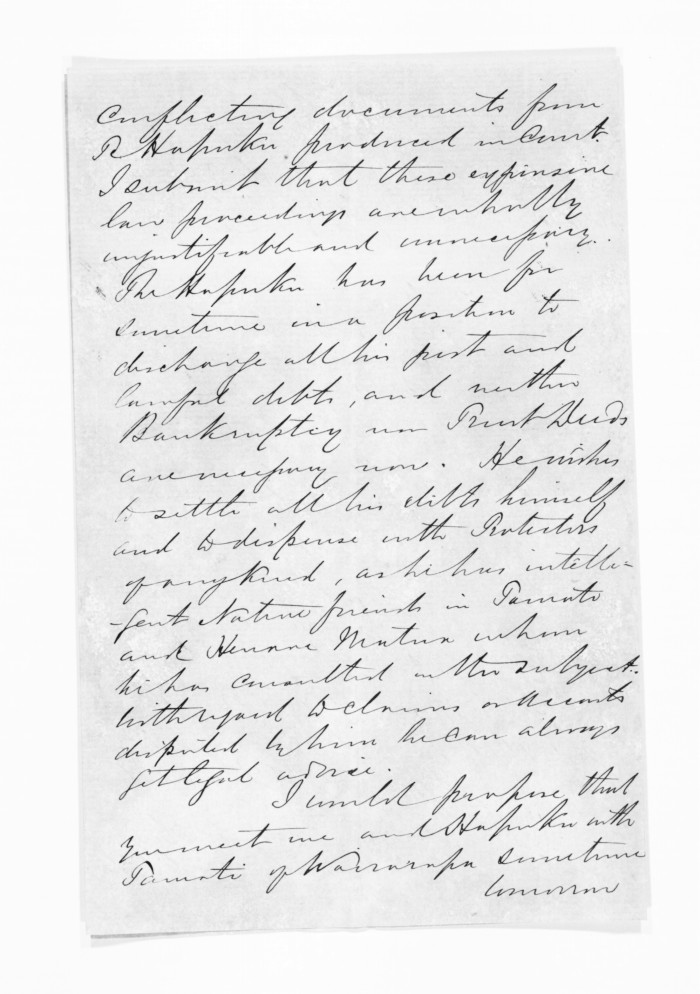 conflicting documents from
Te Hapuku produced in Court.
I submit that these expensive
law proceedings are wholly
unjustifiable and unnecessary.
Te Hapuku has been for
sometime in a position to
discharge all his just and
lawful debts, and neither
Bankruptcy nor Trust Deeds
are necessary now. He wishes
to settle all his debts himself
and to dispense with Protectors
of any kind, as he has intelli-
-gent Native friends in Tamati
and Henare Matua whom
he has consulted on the subject.
With regard to claims or accounts
disputed by him he can always
get legal advice.
I would propose that
you meet me and Hapuku with
Tamati of Wairarapa sometime
tomorrow